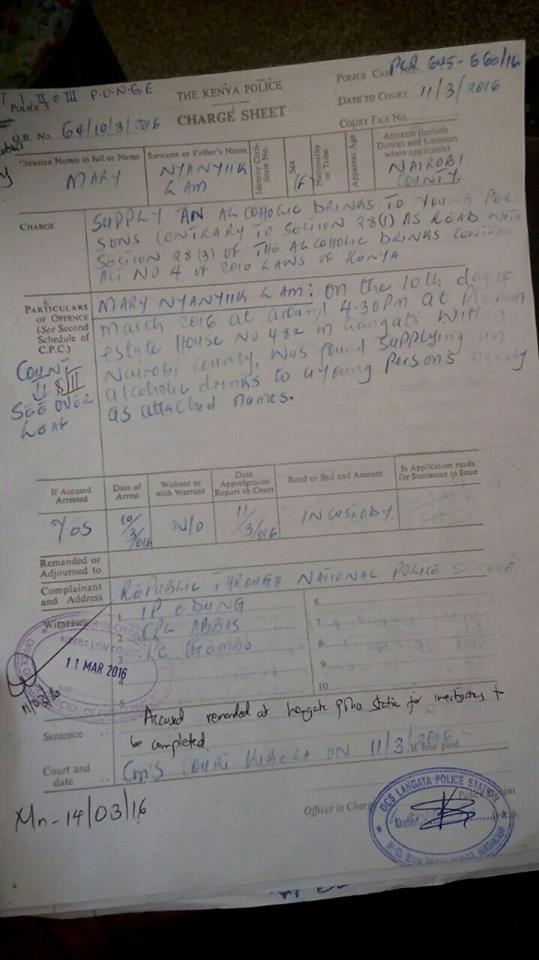 PCR 645-660/16
I II & III P.O.N.G.E
THE KENYA POLICE
POLICE CASE No.
POLICE 3
CHARGE SHEET
DATE TO COURT 11/3/2016
O.B. No. 64/10/3/2016
COURT FILE No.
Christian Names in full or Name
Surname or Father's Name
Identity Certificate No.
Sex
Nationality or Tribe
Apparent Age
ADDRESS (Include District and Location where applicable)
MARY
NYANYIIK LAM
(F)
NAIROBI COUNTY.
CHARGE
SUPPLY AN ALCOHOLIC DRINKS TO YOUNG PER-
SONS CONTRARY TO SECTION 28(1) AS READ WITH
SECTION 28(3) OF THE ALCOHOLIC DRINKS CONTROL
ACT NO 4 OF 2010 LAWS OF KENYA
PARTICULARS OF OFFENCE (See Second Schedule of C.P.C.)
MARY NYANYIIK LAM: on the 10th day of
March 2016 at around 4.30pm at
estate House No 482 in Langata within
Nairobi County, was found supplying an
alcoholic drinks to a young persons namely
as attached names.
COUNT
II & III
SEE OVER
LEAF
If Accused Arrested
Date of Arrest
Without or with Warrant
Date Apprehension Report to Court
Bond or Bail and Amount
Is Application made for Summons to Issue
YES
10/3/016
W/O
11/3/016
IN CUSTODY.
Remanded or Adjourned to
Complainant and Address
REPUBLIC THROUGH NATIONAL POLICE SERVICE
Witnesses
1. IP ODUNG
2. CPL ABBAS
3. PC GOMBO
4
5
6
7
8
9
10
11 MAR 2016
11/03/16
Sentence
Accused remanded at Langata Police Station for investigations to
be completed.
Court and date
CM'S COURT KIBERA ON 11/3/2016
if fine paid
Mn-14/03/16
Officer in Charge
Police Station
OCS LANGATA POLICE STATION
Date